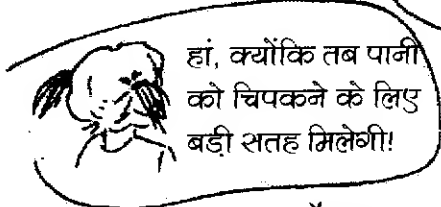 हां, क्योंकि तब पानी
को चिपकने के लिए
बड़ी सतह मिलेगी!